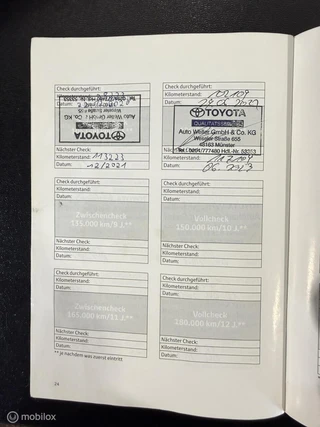 Check durchgeführt:
Kilometerstand:
Datum:
TOYOTA
Auto Weller GmbH & Co. KG
Weseler Straße 655
Nächster Check:
Kilometerstand: 113223
Datum: 12/2021
Check durchgeführt:
Kilometerstand:
Datum:
TOYOTA
Auto Weller GmbH & Co. KG
Weseler Straße 655
48163 Münster
Tel. 0251/777480 Hdl.-Nr. 53353
Kilometerstand:
Datum:
Check durchgeführt:
Kilometerstand:
Datum:
Zwischencheck
135.000 km/9 J.**
Nächster Check:
Kilometerstand:
Datum:
Check durchgeführt:
Kilometerstand:
Datum:
Vollcheck
150.000 km/10 J.**
Nächster Check:
Kilometerstand:
Datum:
Check durchgeführt:
Kilometerstand:
Datum:
Zwischencheck
165.000 km/11 J.**
Nächster Check:
Kilometerstand:
Datum:
** je nachdem was zuerst eintritt
Check durchgeführt:
Kilometerstand:
Datum:
Vollcheck
180.000 km/12 J.**
Nächster Check:
Kilometerstand:
Datum:
24
mobilox